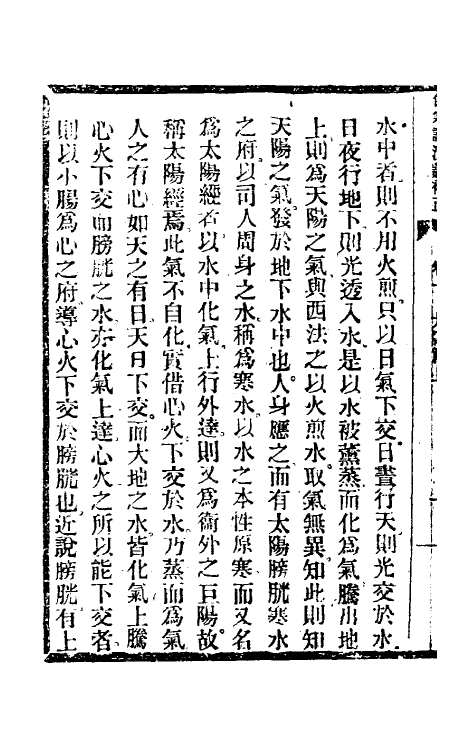 水中者則不用火煎只以日氣下交日晝行天則光交於水
日夜行地下則光透入水是以水被薰蒸而化爲氣騰出地
上則爲天陽之氣與西法之以火煎水取氣無異知此則知
天陽之氣發於地下水中也人身應之而有太陽膀胱寒水
之府以司人周身之水稱爲寒水以水之本性原寒而又名
爲太陽經者以水中化氣上行外達則又爲衞外之巨陽故
稱太陽經焉此氣不自化實借心火下交於水乃蒸而爲氣
人之有心如天之有日天日下交而大地之水皆化氣上騰
心火下交而膀胱之水亦化氣上達心火之所以能下交者
則以小腸爲心之府導心火下交於膀胱也近說膀胱有上